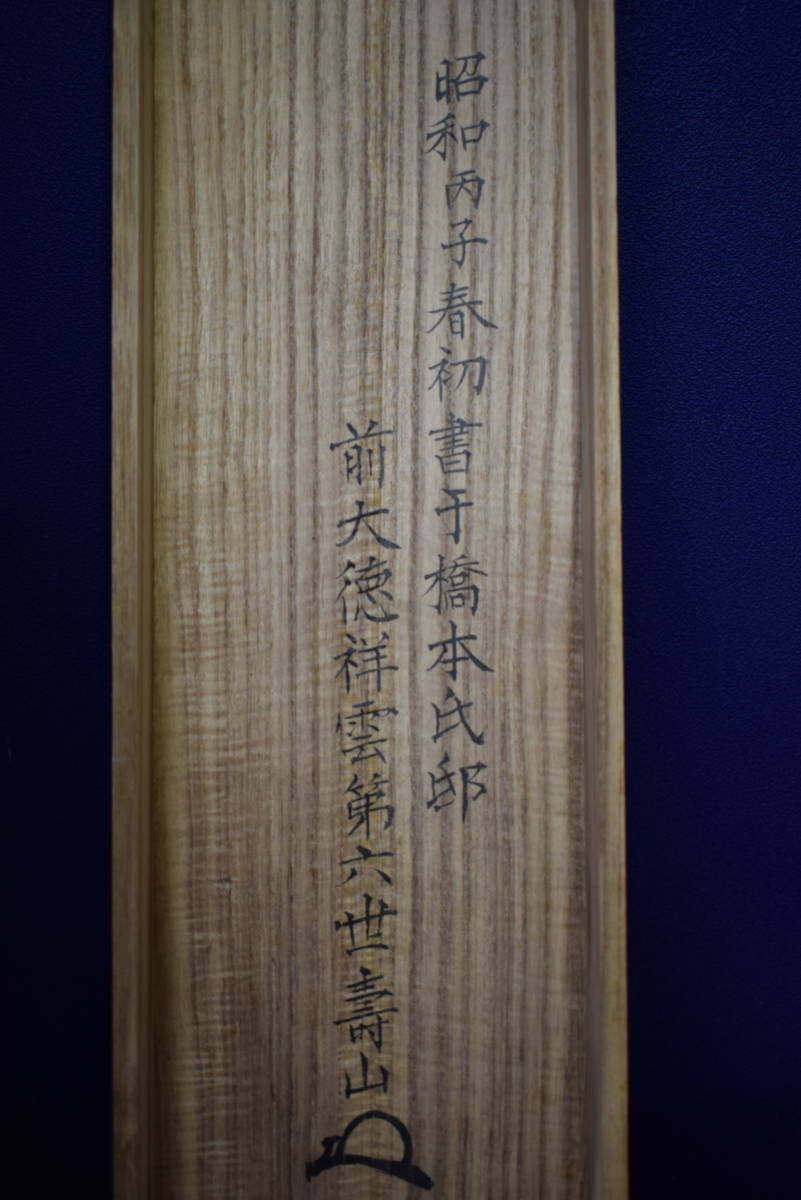 昭和丙子春初書于橋本氏邸
前大徳祥雲第六世壽山